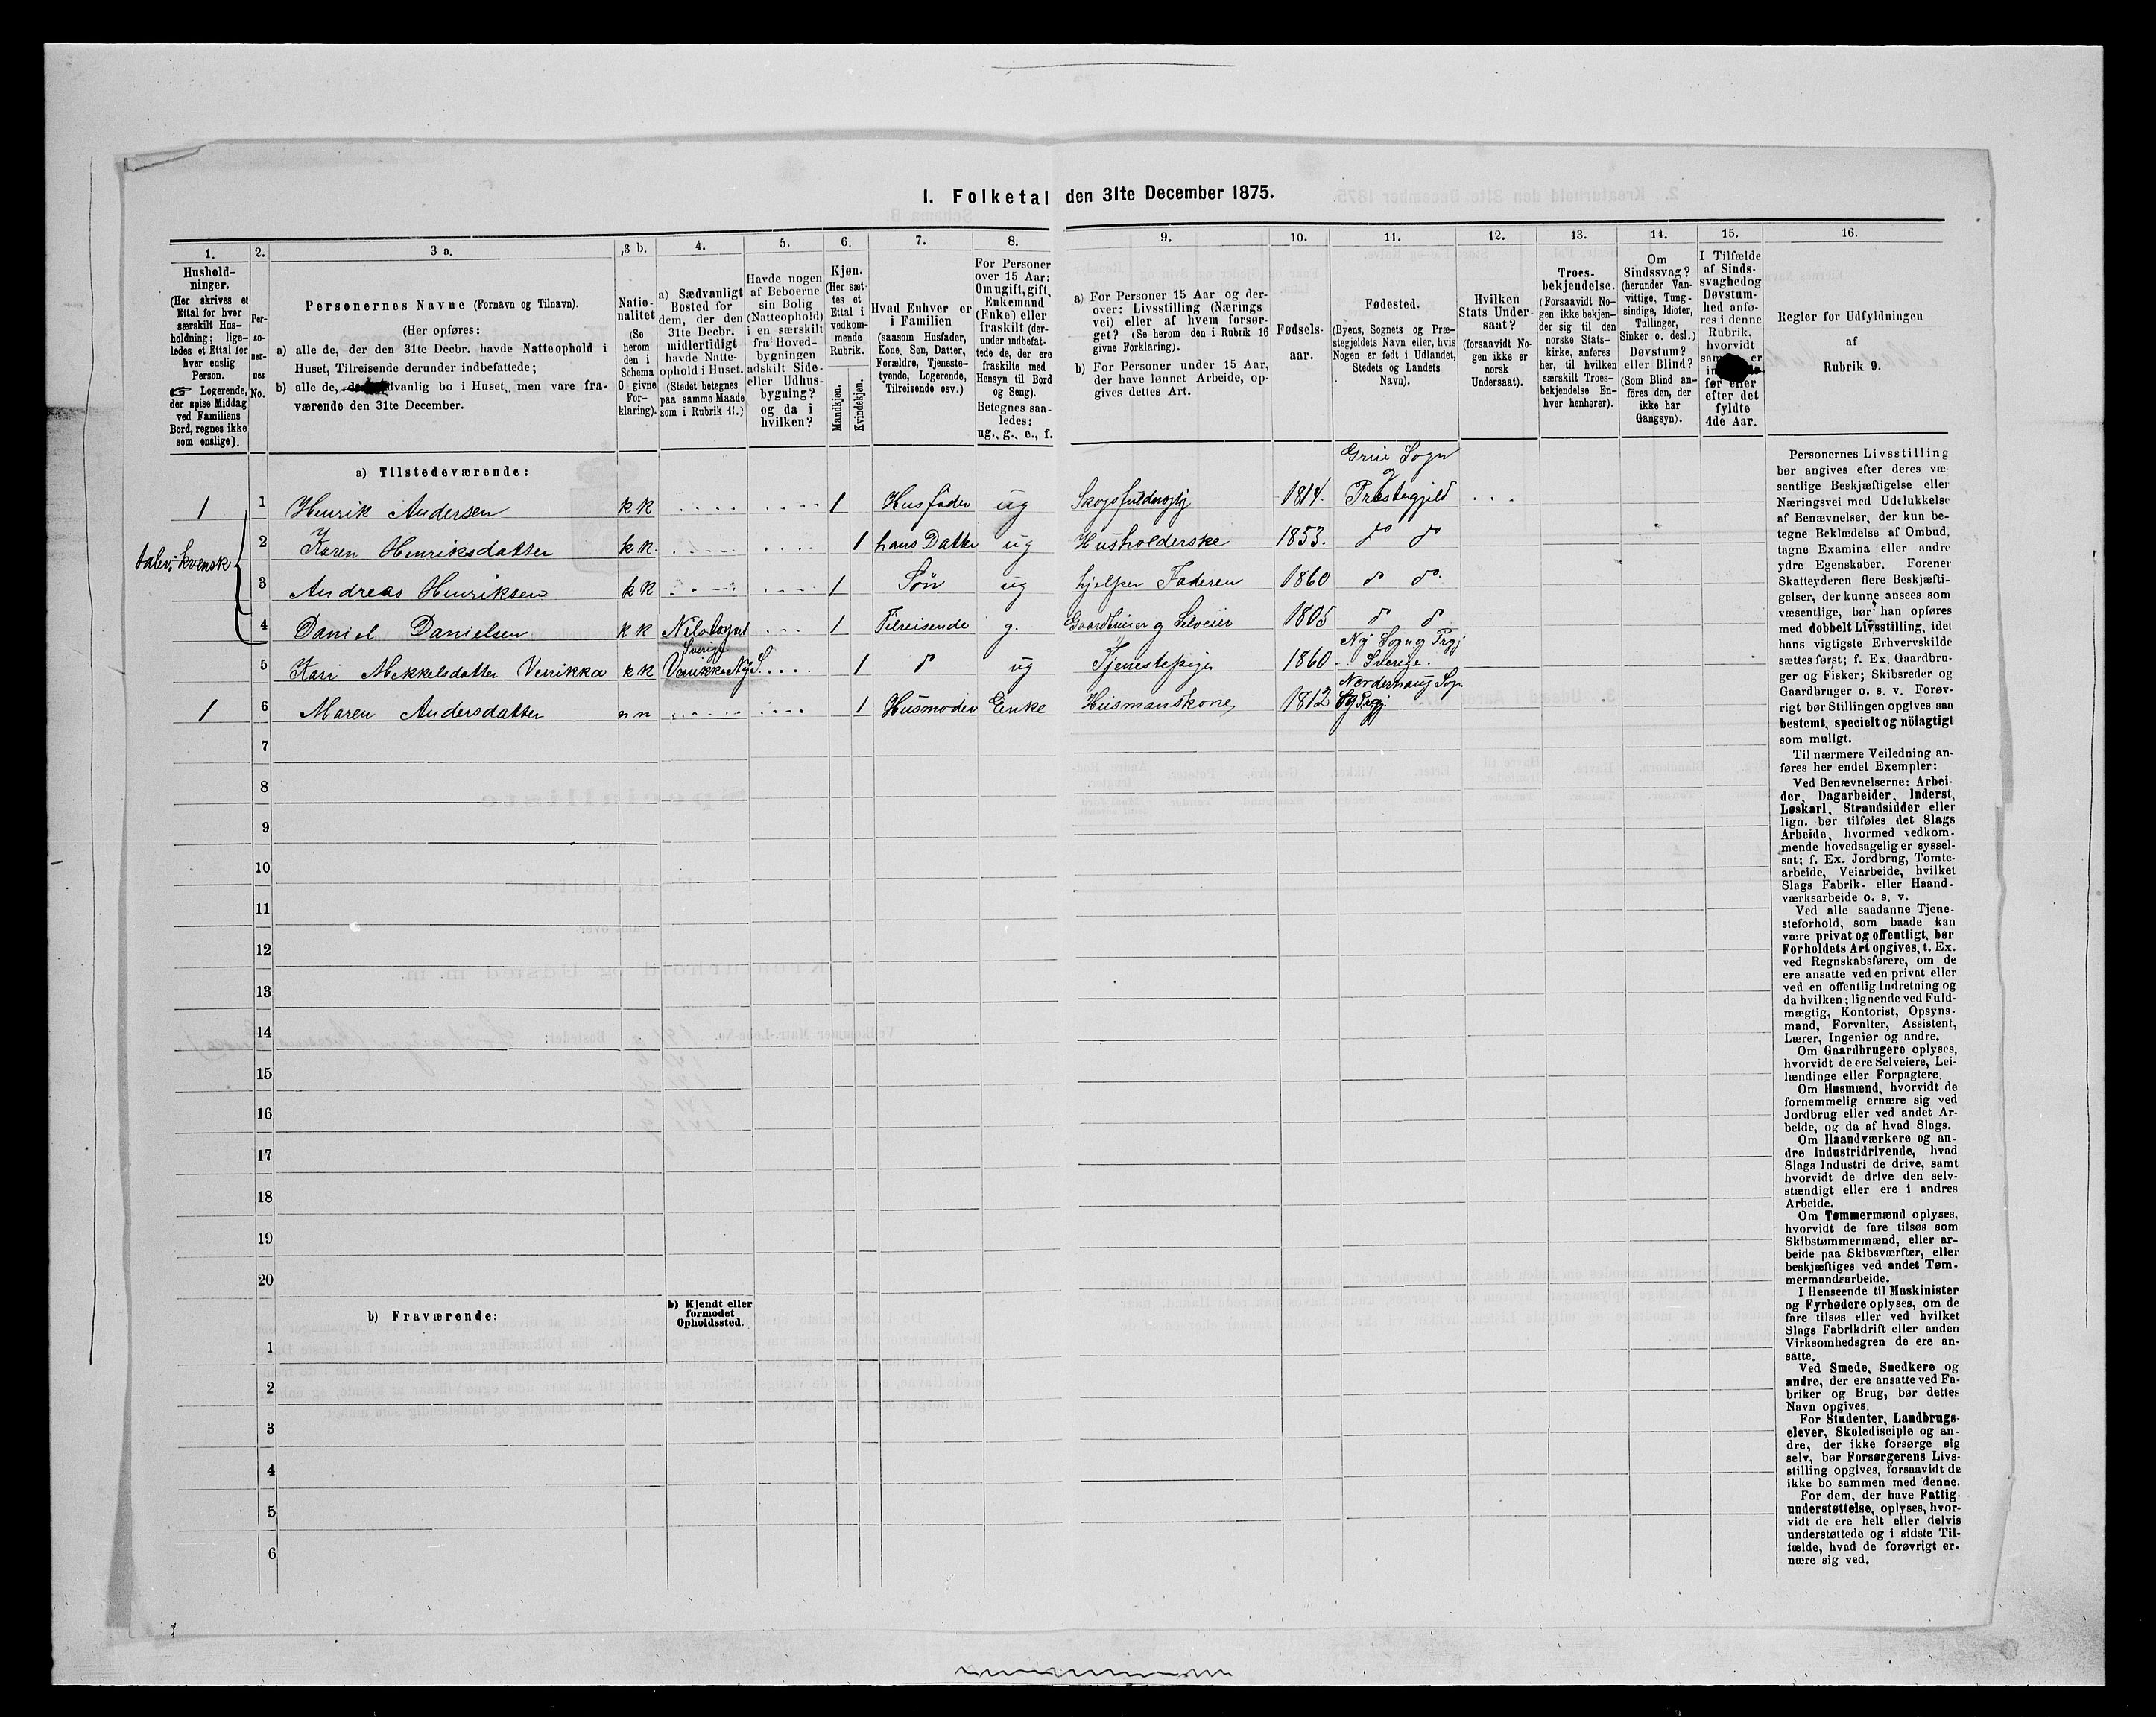 I. Folketal den 31te December 1875.
1.
2.
3 a.
3 b.
4.
5.
6.
7.
8.
9.
10.
11.
12.
13.
14.
15.
16.
Hushold-
ninger.
(Her skrives et
Ettal for hver
særskilt Hus-
holdning; lige-
ledes et Ettal for
hver enslig
Person.
☞ Logerende,
der spise Middag
ved Familiens
Bord, regnes ikke
som enslige).
Per-
so-
ner-
nes
No.
Personernes Navne (Fornavn og Tilnavn).
(Her opføres:
a) alle de, der den 31te Decbr. havde Natteophold i
Huset, Tilreisende derunder indbefattede;
b) alle de, dvanlig bo i Huset, men vare fra-
værende den 31te December.
Natio-
nalitet
(Se
herom
den i
Schema
O givne
For-
klaring).
a) Sædvanligt
Bosted for
dem, der den
31te Decbr.
midlertidigt
havde Natte-
ophold i Huset.
(Stedet betegnes
paa samme Maade
som i Rubrik 11.)
Havde nogen
af Beboerne
sin Bolig
(Natteophold)
i en særskilt
fra Hoved-
bygningen
adskilt Side-
eller Udhus-
bygning?
og da i
hvilken?
Kjøn.
(Her sæt-
tes et
Ettal i
vedkom-
mende
Rubrik.
Mandkjøn.
Kvindekjøn.
Hvad Enhver er
i Familien
(saasom Husfader,
Kone, Søn, Datter,
Forældre, Tjeneste-
tyende, Logerende,
Tilreisende osv.)
For Personer
over 15 Aar:
Om ugift, gift,
Enkemand
(Enke) eller
fraskilt (der-
under indbefat-
tede de, der ere
fraskilte med
Hensyn til Bord
og Seng).
Betegnes saa-
ledes:
ug., g., e., f.
a) For Personer 15 Aar og der-
over: Livsstilling (Nærings
vei) eller af hvem forsør-
get? (Se herom den i Rubrik 16
givne Forklaring).
b) For Personer under 15 Aar,
der have lønnet Arbeide, op-
gives dettes Art.
Fødsels-
aar.
Fødested.
(Byens, Sognets og Præ-
stegjeldets Navn eller, hvis
Nogen er født i Udlandet,
Stedets og Landets
Navn).
Hvilken
Stats Under-
saat?
(forsaavidt No-
gen ikke er
norsk
Undersaat).
Troes-
bekjendelse.
(Forsaavidt No-
gen ikke bekjen-
der sig til den
norske Stats-
kirke, anføres
her, til hvilken
særskilt Troes-
bekjendelse En-
hver henhører).
Om
Sindssvag?
(herunder Van-
vittige, Tung-
sindige, Idioter,
Tullinger,
Sinker o. desl.)
Døvstum?
eller Blind?
(Som Blind an-
føres den, der
ikke har
Gangsyn).
I Tilfælde
af Sinds-
svaghed og
Døvstum-
hed anfø-
res i denne
Rubrik,
hvorvidt
før eller
efter det
fyldte
4de Aar.
Regler for Udfyldningen
af
Rubrik 9.
a) Tilstedeværende:
Grue Sogn
og
1 1 Henrik Andersen k k 1 Husfader ug 1814. Præstegjeld
talev. kvensk
2 Karen Henriksdatter k k. 1 hans Datter ug Husholderske 1853. do do
3 Andreas Henriksen k k 1 Søn ug hjelper Faderen 1860 do do.
4 Daniel Danielsen k k 1 Tilreisende g. Gaardbruger og Selveier 1805 do do
5 Kari Mekkelsdatter Verrikka k k Sverige 1 do ug Tjenestepige 1860 Ny Sogn og Prgj
Sverige.
1 6 Maren Andersdatter n n 1 Husmoder Enke Husmanskone 1812 Nordernaug Sogn
og Prgj.
7
8
9
10
11
12
13
14
15
16
17
18
19
20
b) Fraværende:
b) Kjendt eller
formodet
Opholdssted.
1
2
3
4
5
6
Personernes Livsstilling
bør angives efter deres væ-
sentlige Beskjæftigelse eller
Næringsvei med Udelukkelse
af Benævnelser, der kun be-
tegne Beklædelse af Ombud,
tagne Examina eller andre
ydre Egenskaber. Forener
Skatteyderen flere Beskjæfti-
gelser, der kunne ansees som
væsentlige, bør han opføres
med dobbelt Livsstilling, idet
hans vigtigste Erhvervskilde
sættes først; f. Ex. Gaardbru-
ger og Fisker; Skibsreder og
Gaardbruger o. s. v. Forøv-
rigt bør Stillingen opgives saa
bestemt, specielt og nöiagtigt
som muligt.
Til nærmere Veiledning an-
føres her endel Exempler:
Ved Benævnelserne: Arbei-
der, Dagarbeider, Inderst,
Løskarl, Strandsidder eller
lign. bør tilføies det Slags
Arbeide, hvormed vedkom-
mende hovedsagelig er syssel-
sat; f. Ex. Jordbrug, Tomte-
arbeide, Veiarbeide, hvilket
Slags Fabrik- eller Haand-
værksarbeide o. s. v.
Ved alle saadanne Tjene-
steforhold, som baade kan
være privat og offentligt, bør
Forholdets Art opgives, t. Ex.
ved Regnskabsførere, om de
ere ansatte ved en privat eller
ved en offentlig Indretning og
da hvilken; lignende ved Fuld-
mægtig, Kontorist, Opsyns-
mand, Forvalter, Assistent,
Lærer, Ingeniør og andre.
Om Gaardbrugere oplyses,
hvorvidt de ere Selveiere, Lei-
lændinge eller Forpagtere.
Om Husmænd, hvorvidt de
fornemmelig ernære sig ved
Jordbrug eller ved andet Ar-
beide, og da af hvad Slags.
Om Haandværkere og an-
dre Industridrivende, hvad
Slags Industri de drive, samt
hvorvidt de drive den selv-
stændigt eller ere i andres
Arbeide.
Om Tømmermænd oplyses,
hvorvidt de fare tilsøs som
Skibstømmermænd, eller ar-
beide paa Skibsværfter, eller
beskjæftiges ved andet Tøm-
mermandsarbeide.
I Henseende til Maskinister
og Fyrbødere oplyses, om de
fare tilsøs eller ved hvilket
Slags Fabrikdrift eller anden
Virksomhedsgren de ere an-
satte.
Ved Smede, Snedkere og
andre, der ere ansatte ved Fa-
briker og Brug, bør dettes
Navn opgives.
For Studenter, Landbrugs-
elever, Skoledisciple og an-
dre, der ikke forsørge sig
selv, bør Forsørgerens Livs-
stilling opgives, forsaavidt de
ikke bo sammen med denne.
For dem, der have Fattig-
understøttelse, oplyses, hvor-
vidt de ere helt eller delvis
understøttede og i sidste Til-
fælde, hvad de forøvrigt er-
nære sig ved.